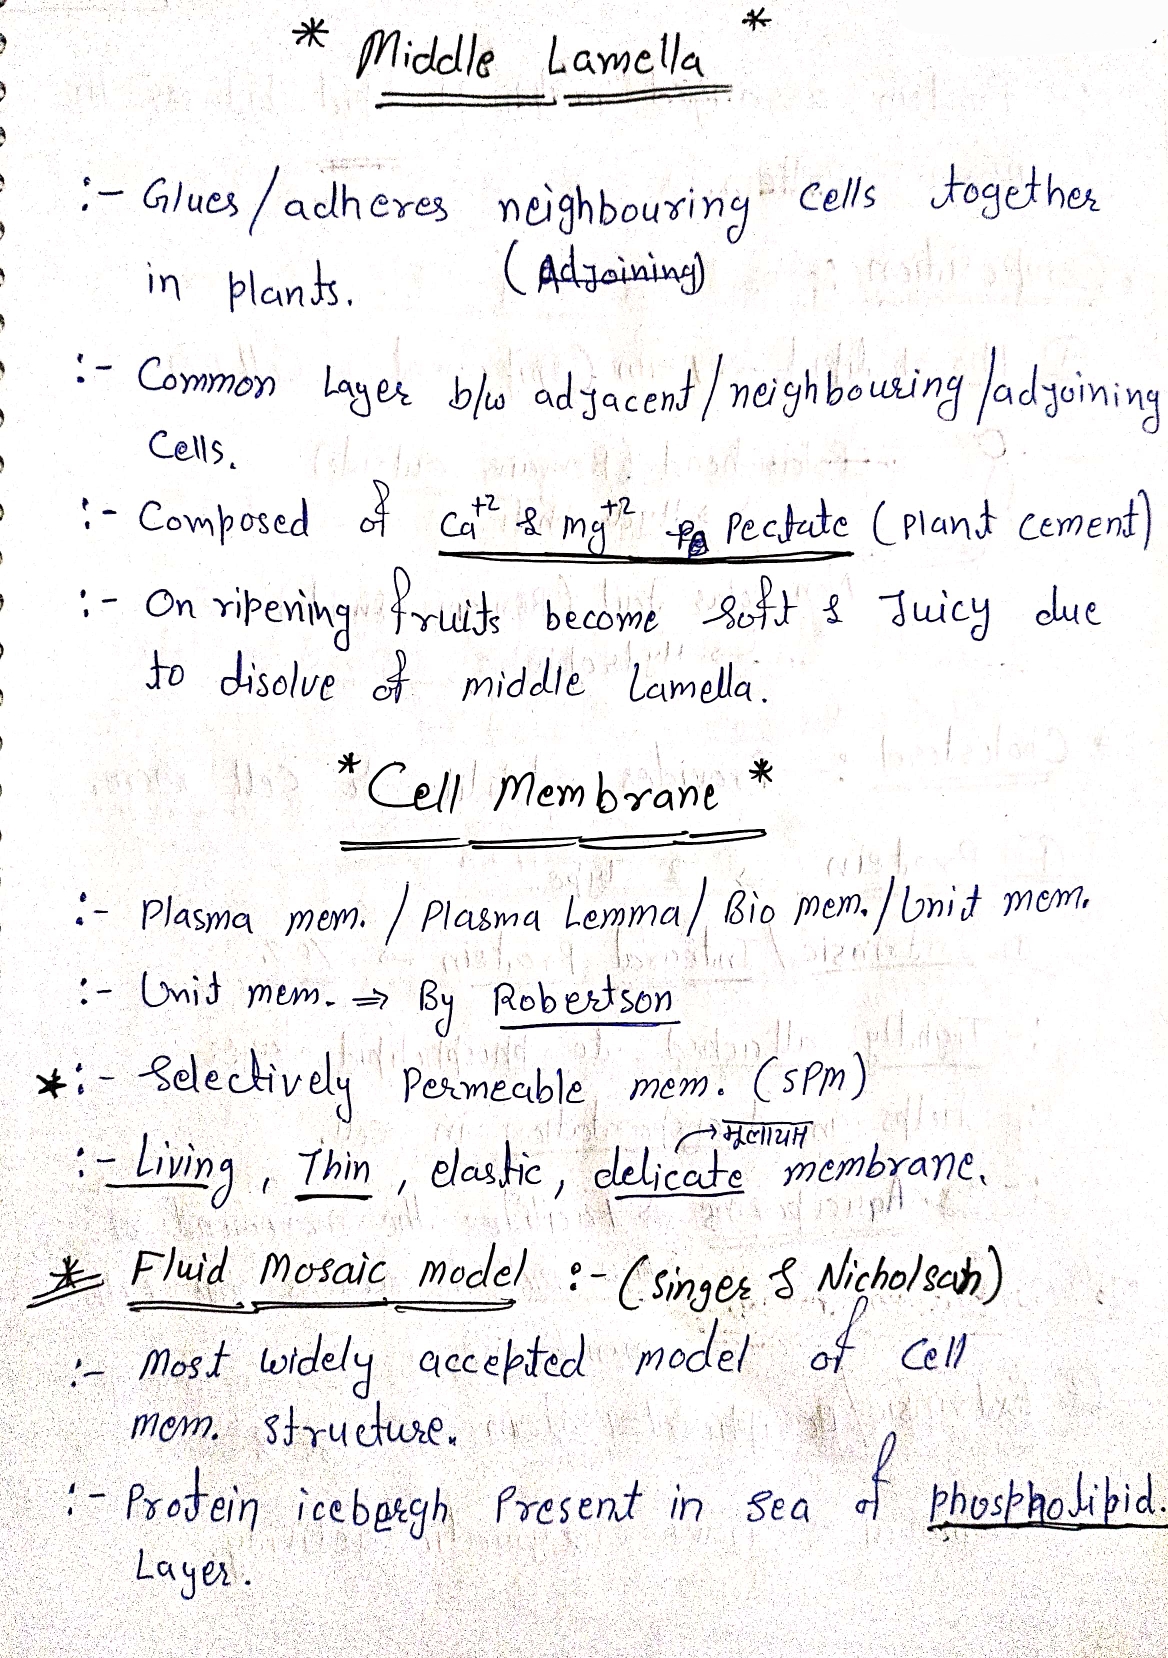 * Middle Lamella *
:- Glues/adheres neighbouring cells together
in plants. (Adjoining)
:- Common Layer b/w adjacent/neighbouring/adjoining
Cells.
:- Composed of Ca+2 & mg+2 Pectate (plant cement)
:- On ripening fruits become soft & Juicy due
to disolve of middle Lamella.
* Cell Membrane *
:- Plasma mem. / Plasma Lemma / Bio mem. / Unit mem.
:- Unit mem. ⇒ By Robertson
*:- Selectively Permeable mem. (SPM)
→ मूलायम
:- Living, Thin, elastic, delicate membrane.
* Fluid Mosaic model :- (Singer & Nicholsan)
:- Most widely accepted model of Cell
mem. structure.
:- Protein icebergh Present in sea of phospholipid.
Layer.